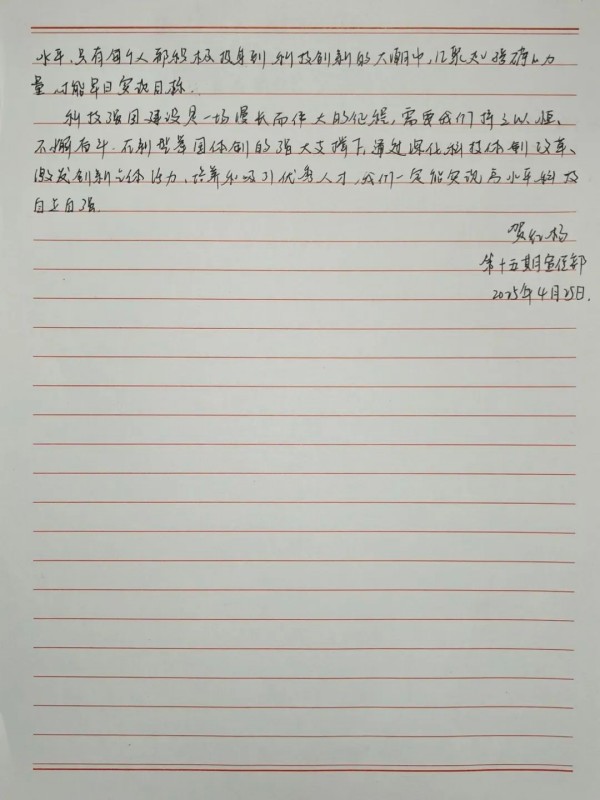 水平，只有每个人都积极投身到科技创新的大潮中，汇聚起磅礴力
量，才能早日实现目标。
科技强国建设是一场漫长而伟大的征程，需要我们持之以恒、
不懈奋斗。在新型举国体制的强大支撑下，通过深化科技体制改革、
激发创新主体活力、培养和吸引优秀人才，我们一定能实现高水平科技
自立自强。
贺红杨
第十五期宣传部
2025年4月25日.